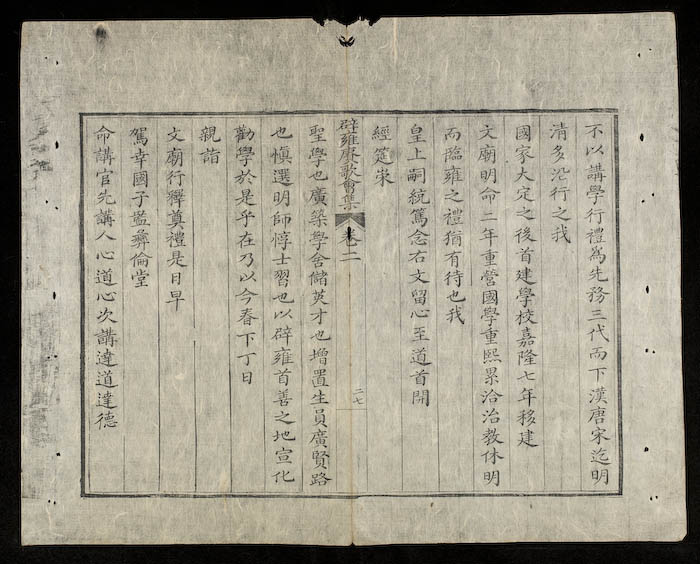 不以講學行禮爲先務三代而下漢唐宋迄明
清多沿行之我
國家大定之後首建學校嘉隆七年移建
文廟明命二年重營國學重熙累洽治教休明
而臨雍之禮猶有待也我
皇上嗣統篤念右文留心至道首開
經筵崇
辟雍賡歌會集 卷二 二七
聖學也廣築學舍儲英才也增置生員廣賢路
也慎選明師惇士習也以辟雍首善之地宣化
勸學於是乎在乃以今春下丁日
親詣
文廟行釋奠禮是日早
駕幸國子監彝倫堂
命講官先講人心道心次講達道達德